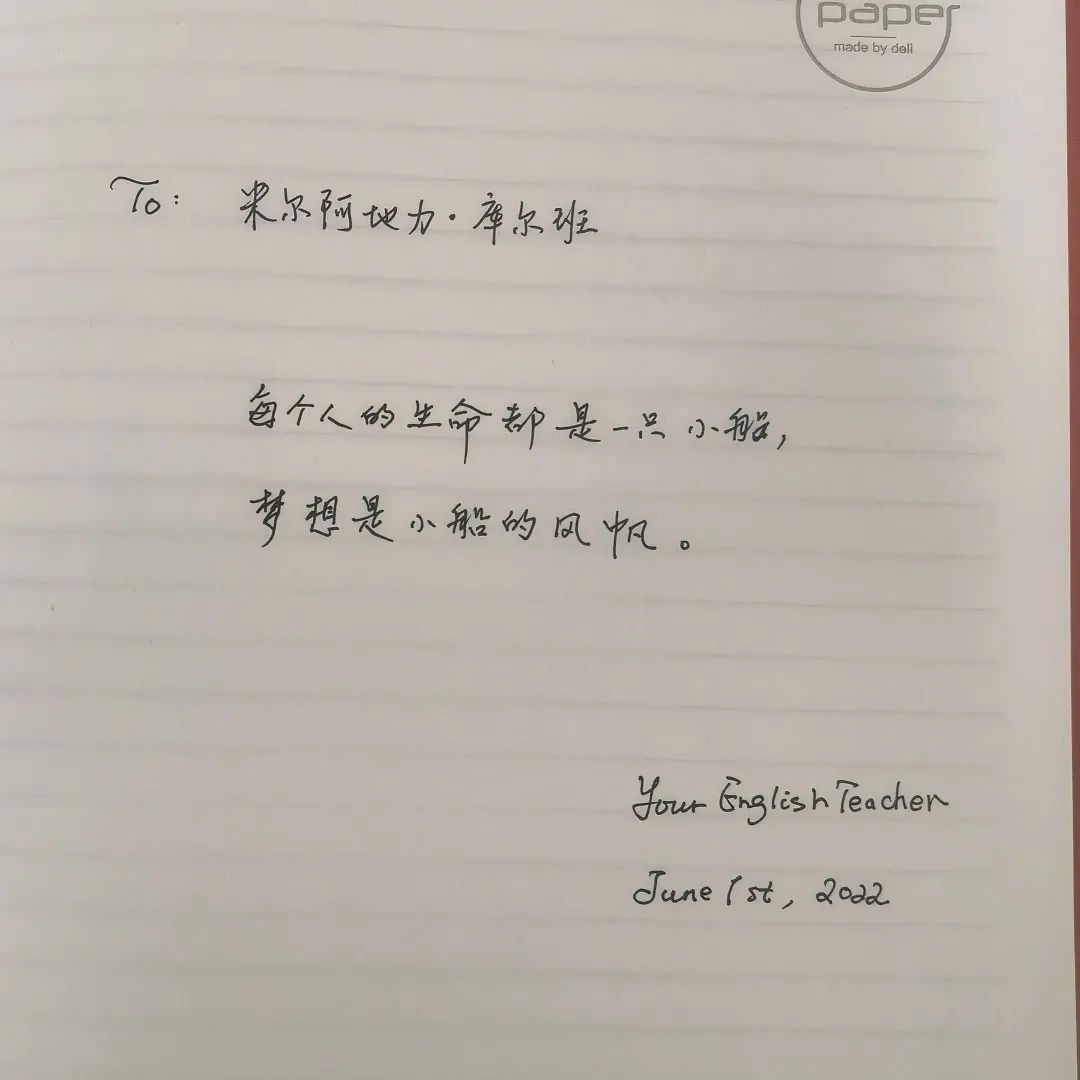 paper
made by deli
To: 米尔阿地力·库尔班
每个人的生命都是一只小船,
梦想是小船的风帆。
Your English Teacher
June 1st, 2022